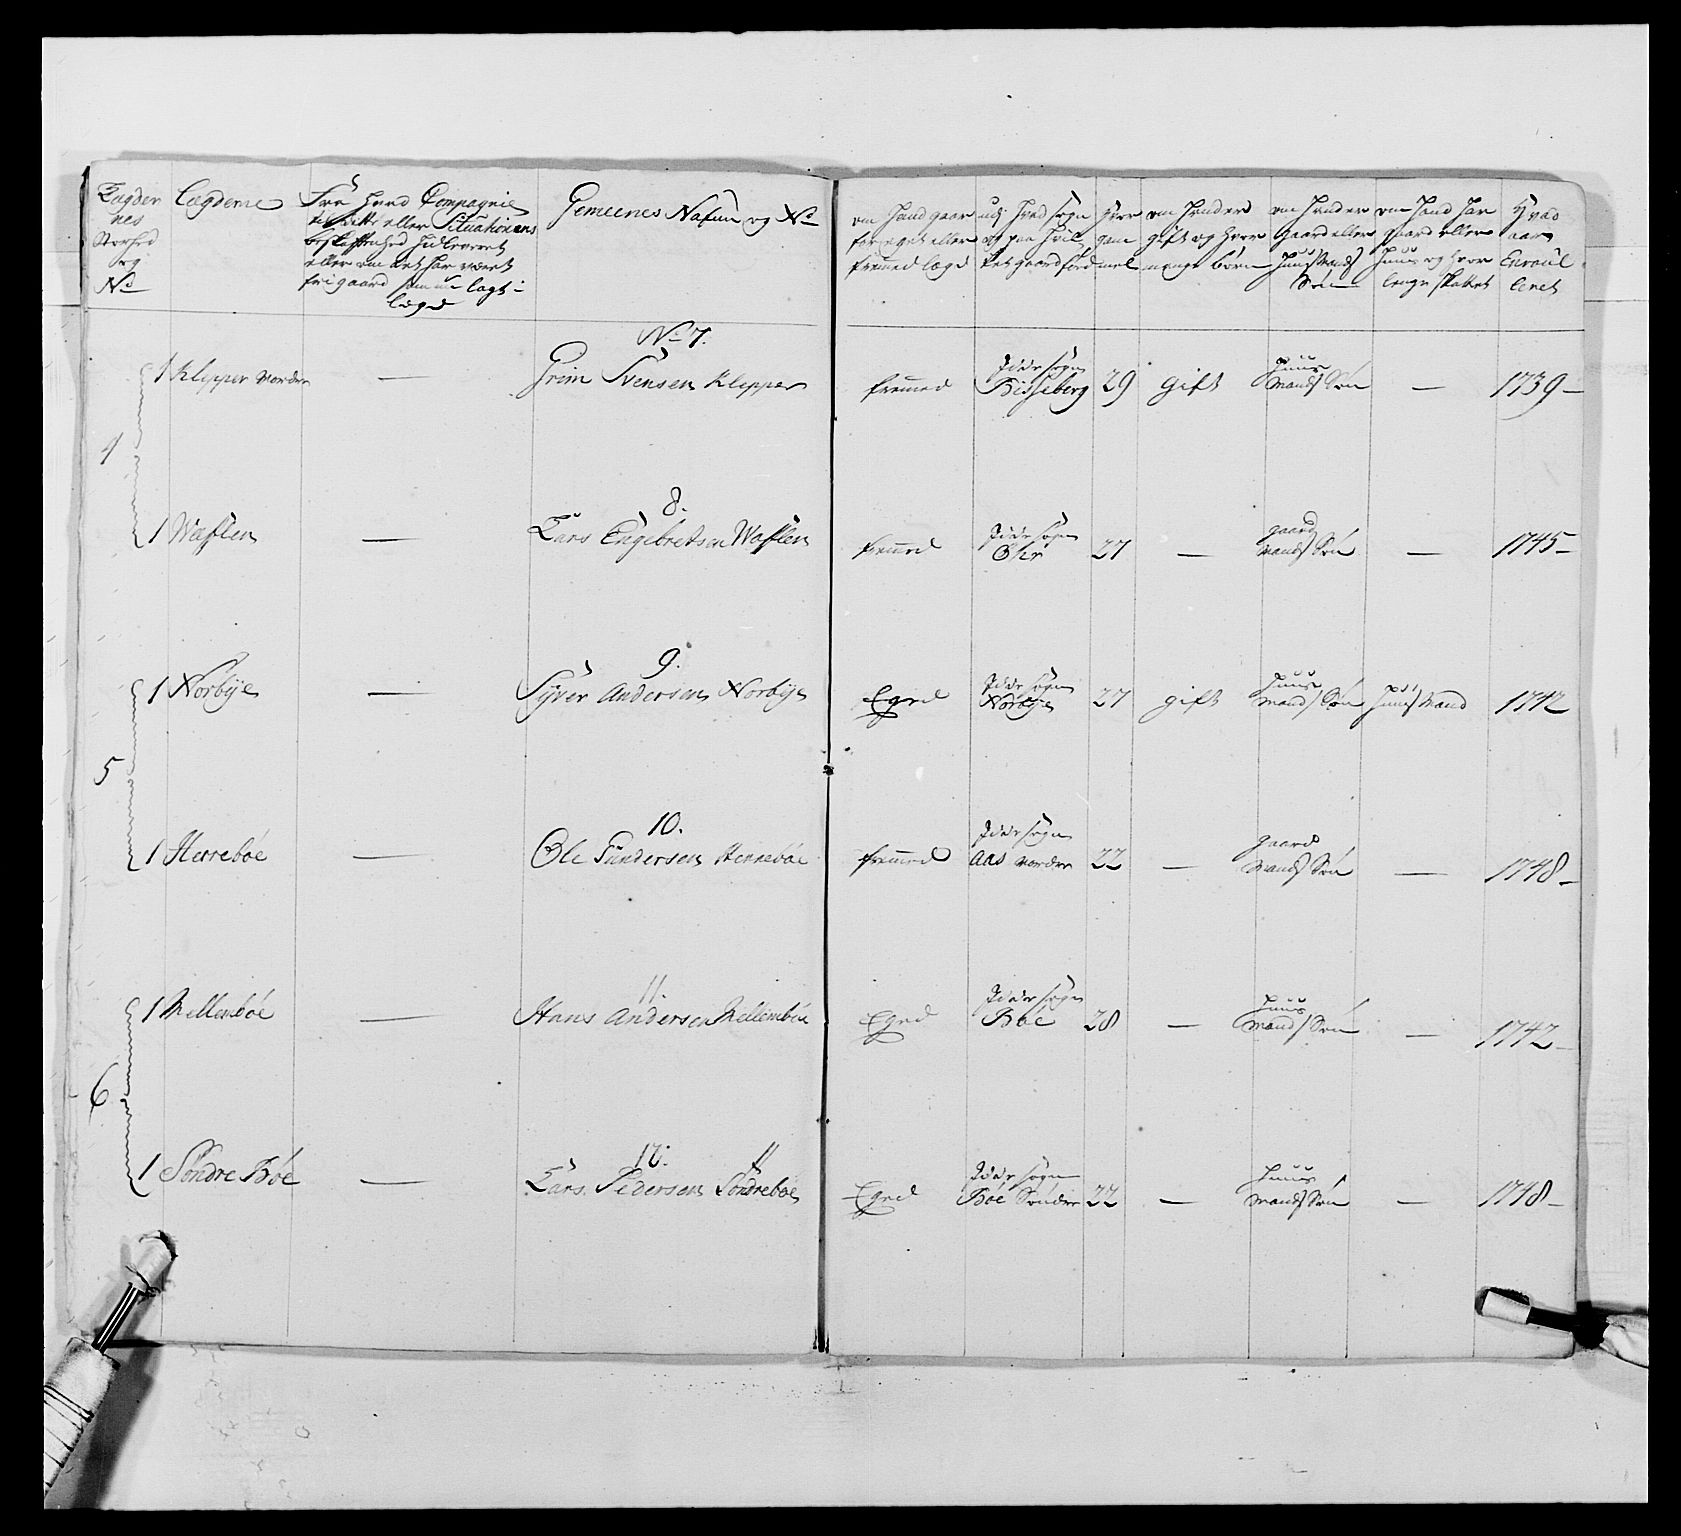 Lægder
nes
Storhed
og
No
Lægderne
Fra hvad Compagnie
eller Situationens
beskaffenhed
eller om det har været
frigaard som nu lagt i
lægd
Gemeenes Nafne og No
om hand gaar
for eget eller
fremed lægd
udj hvad sogn
og paa hvil
ket gaard fød
gam
mel
om hand er
gift og hvor
mange børn
om hand er
gaard eller
huusmands
Søn
om hand har
gaard eller
huus og hvor
lenge skattet
Hvad
aar
Enroul
leret
4
No 7.
1 Klepper nordre — Grim Svensen Klepper fremed Idde sogn Bisseberg 29 gift huusmands Søn — 1739 —
8.
1 Wasslen — Lars Engebretsen Wasslen fremed Idde sogn 27 — gaardmands Søn — 1745 —
5
9.
1 Norbye — Syver Andersen Norbye Eged Idde sogn Norbye 27 gift huusmands Søn huusmand 1742
10.
1 Herrebøe — Ole Gundersen Herrebøe fremed Idde sogn Aas nordre 22 — gaardmands Søn — 1748 —
6
11.
1 Mellembøe — Hans Andersen Mellembøe Eged Idde sogn Bøe 28 — huusmands Søn — 1742 —
12.
1 Søndre Bøe — Lars Pedersen Søndrebøe Eged Idde sogn Bøe Søndre 22 — huusmands Søn — 1748 —